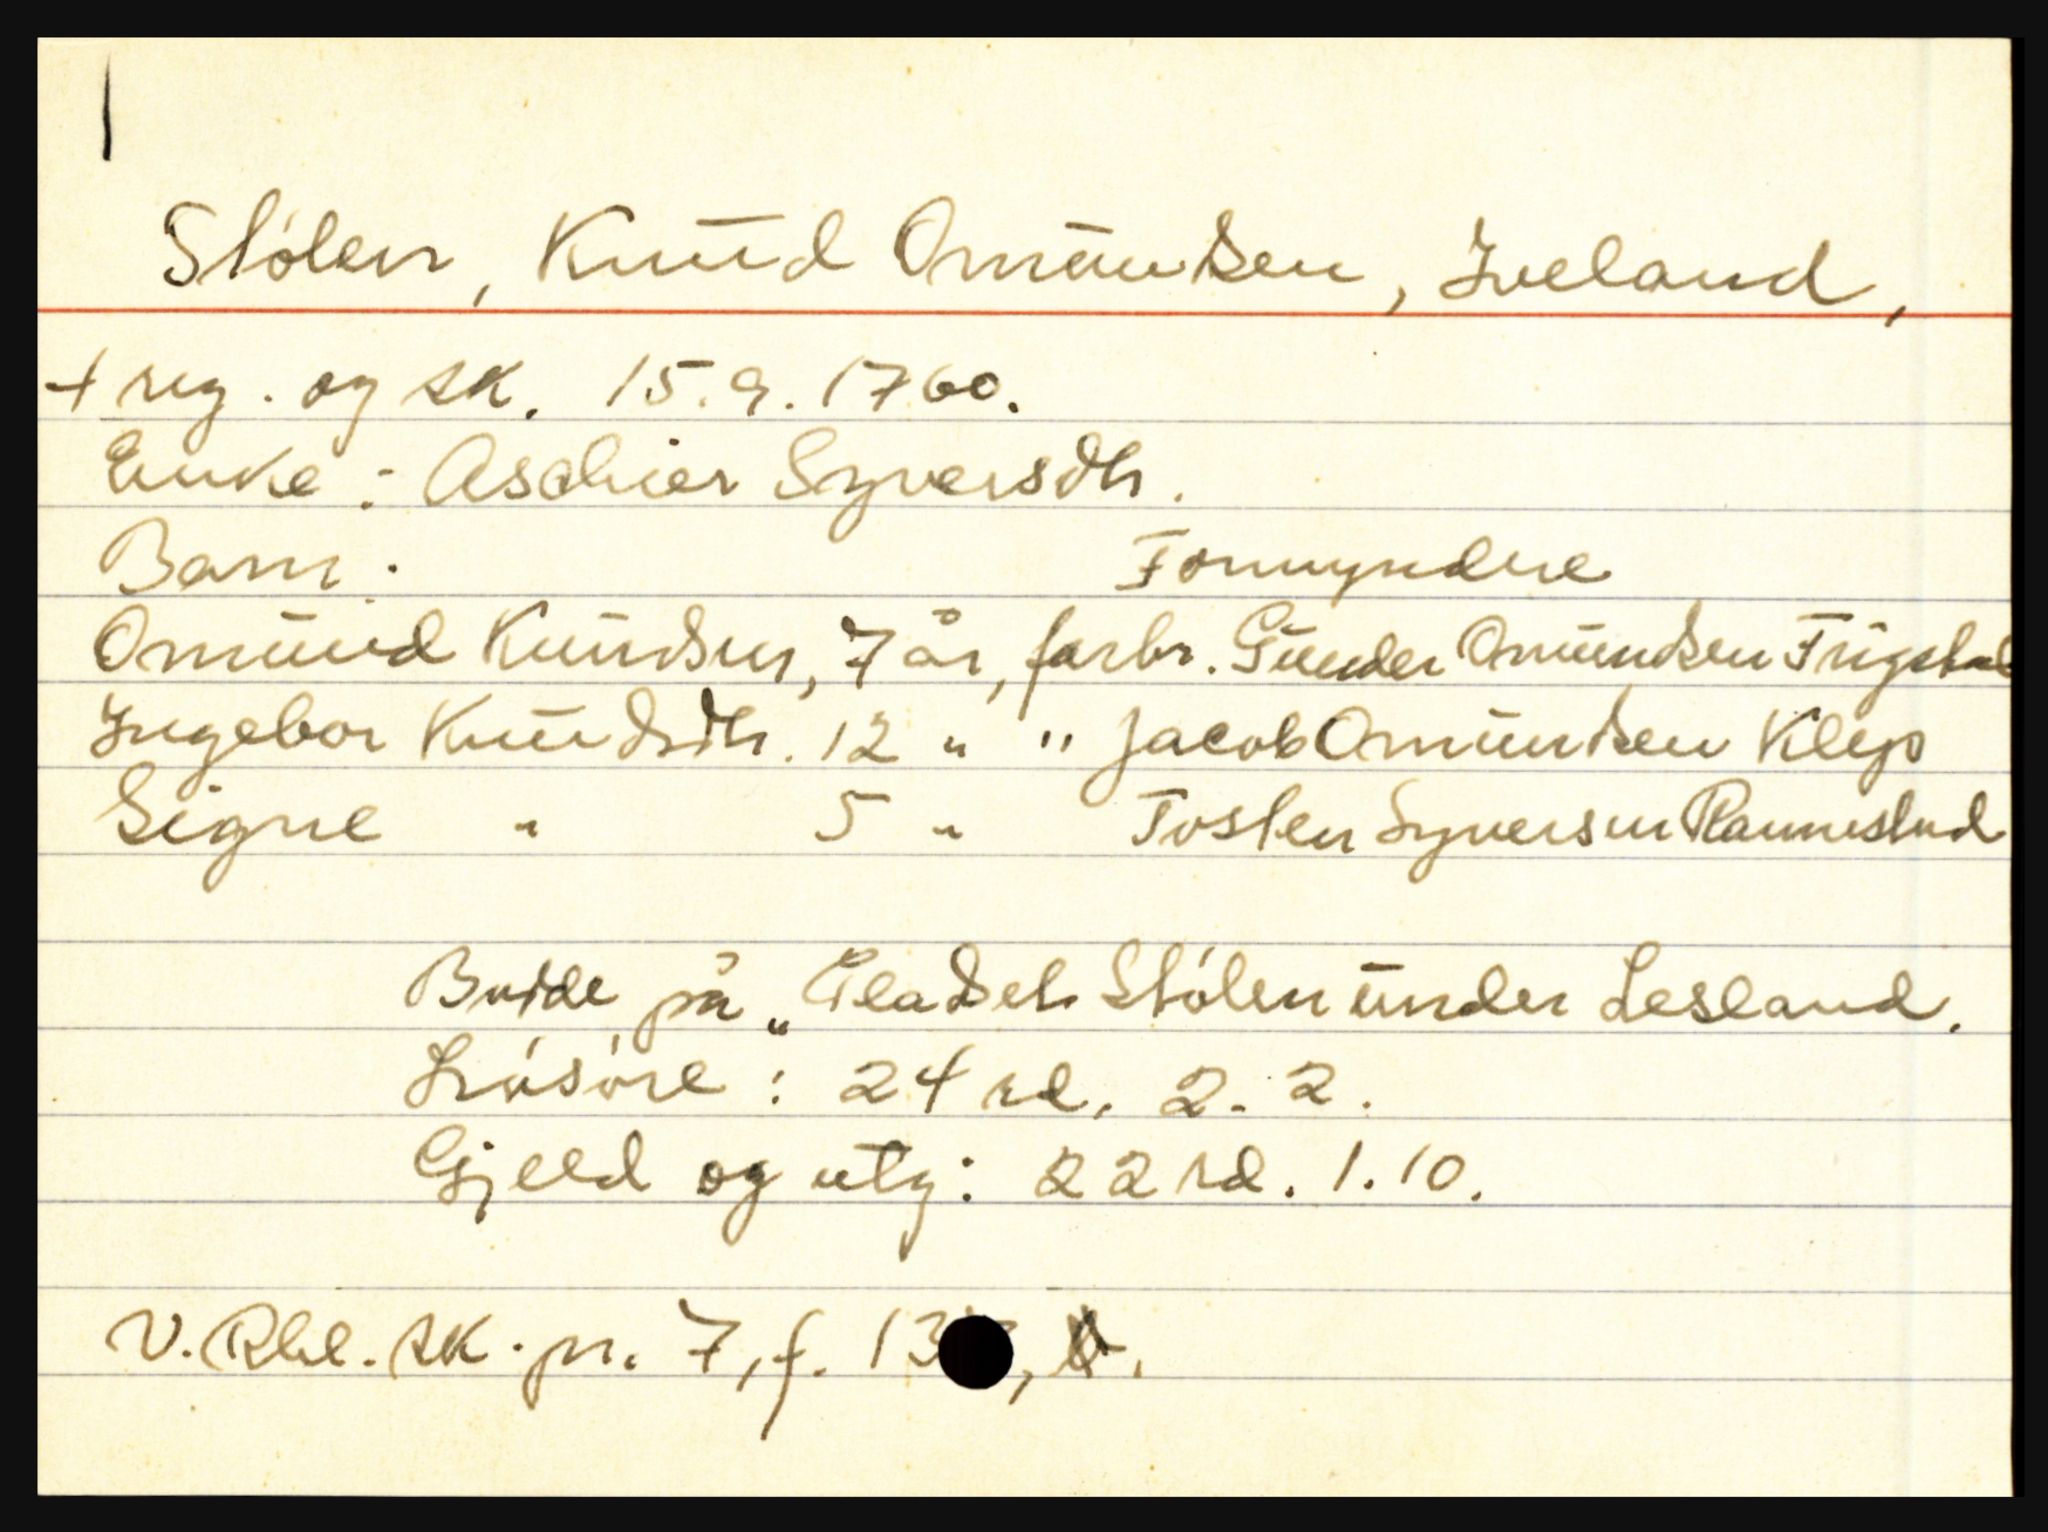 Stølen, Knud Omundsen, Iveland,
+ reg. og sk. 15.9.1760.
Enke: Aschier Syversdtr.
Barn: Formyndere
Omund Knudsen, 7 år, farbr. Gunder Omundsen Frigstad
Ingebor Knudsdtr. 12 " " Jacob Omundsen Klep
Signe " 5 " Tosten Syversen Rannestad
Bodde på „Pladset Stølen under Lesland.
Løsøre: 24 rd. 2. 2.
Gjeld og utg: 22 rd. 1.10.
V. Rbl. sk. pr. 7, f. 13